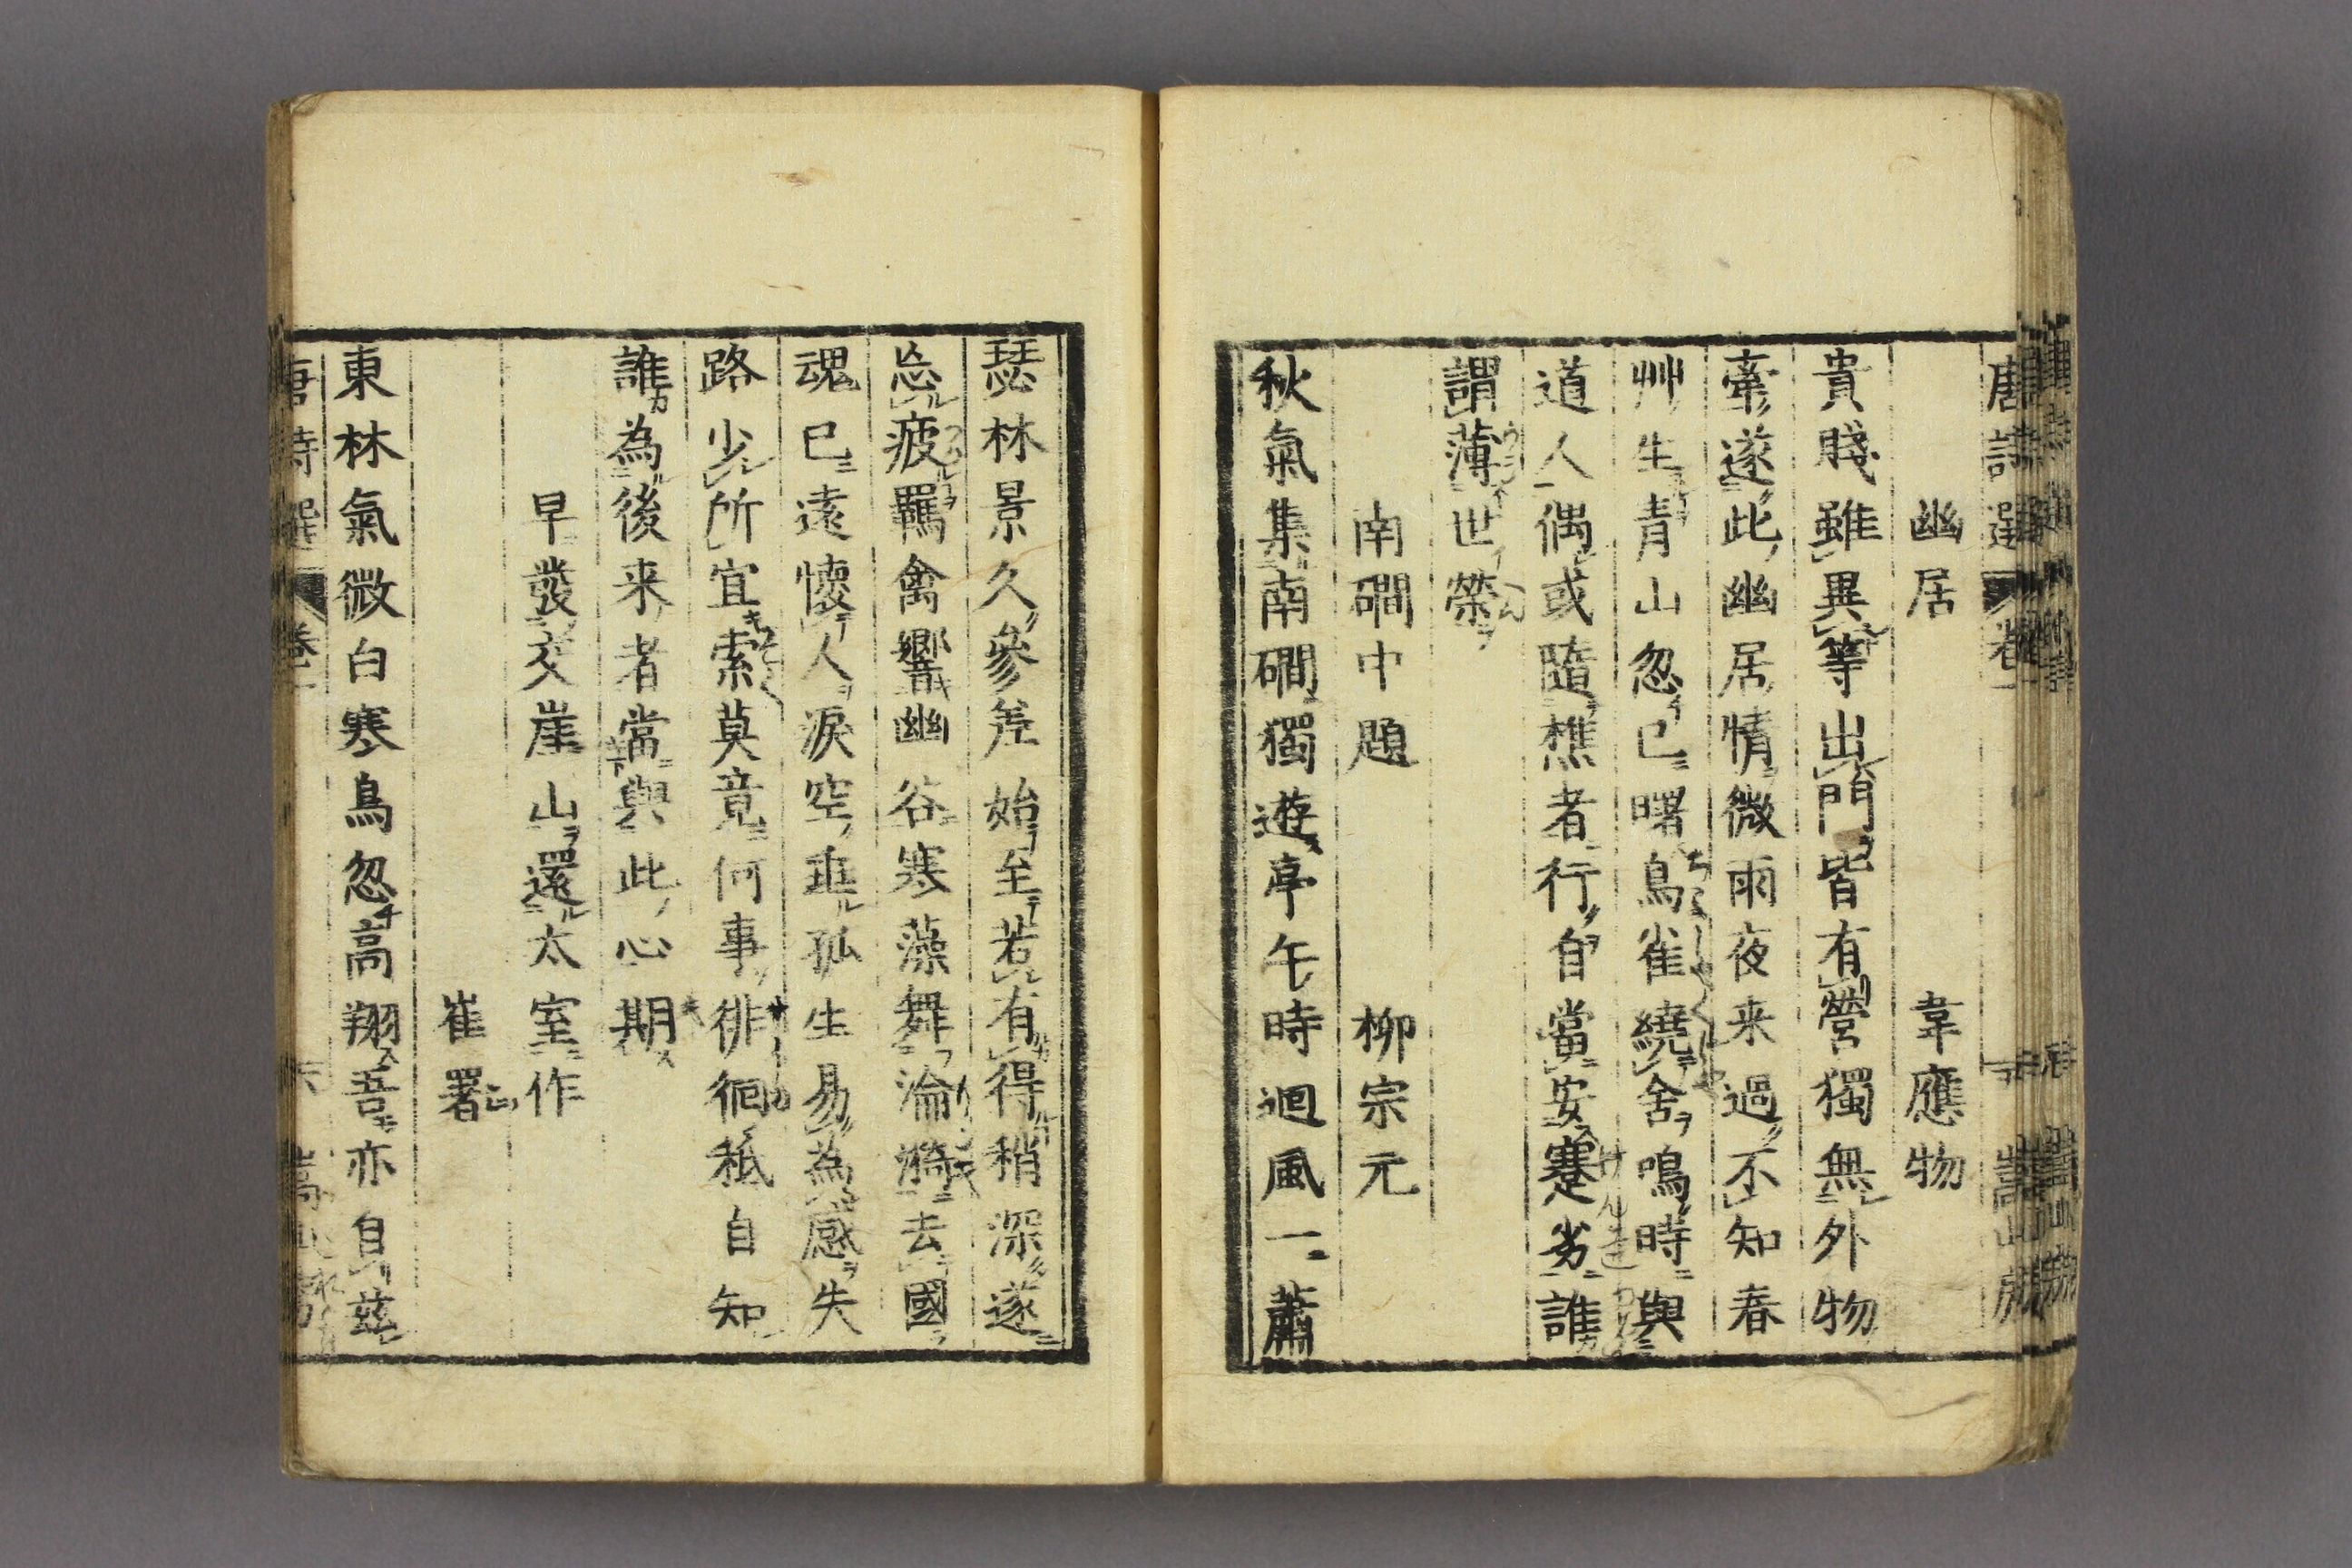 唐詩選 卷一
幽居 韋應物
貴賤雖異等出門皆有營獨無外物
牽遂此幽居情微雨夜来過不知春
艸生青山忽已曙鳥雀繞舍鳴時與
道人偶或隨樵者行自當安蹇劣誰
謂薄世榮
南磵中題 柳宗元
秋氣集南磵獨遊亭午時迴風一蕭
瑟林景久參差始至若有得稍深遂
忘疲羈禽響幽谷寒藻舞淪漪去國
魂已遠懷人淚空垂孤生易為感失
路少所宜索莫竟何事徘徊秪自知
誰為後来者當與此心期
早發交崖山還太室作
崔署
東林氣微白寒鳥忽高翔吾亦自茲
唐詩選 卷一 六